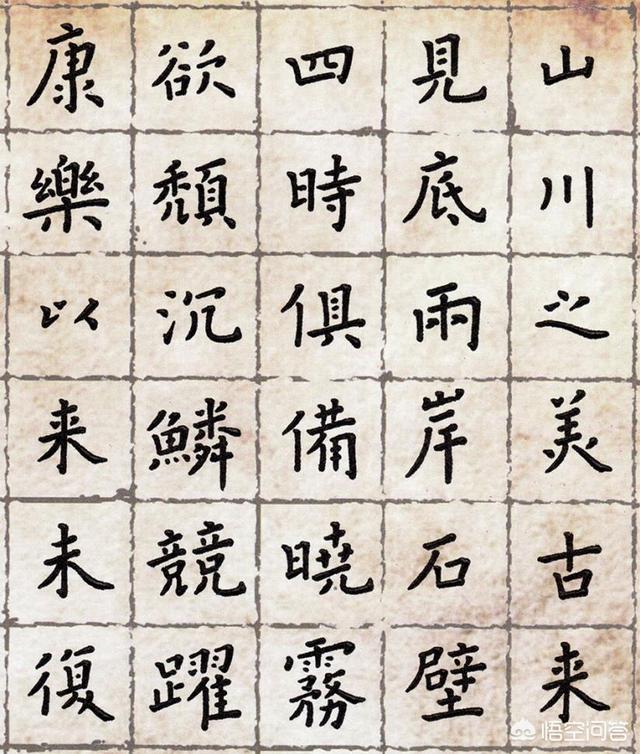 山川之美古来
見底雨岸石壁
四時俱備曉霧
欲頽沉鱗競躍
康樂以来未復
悟空问答